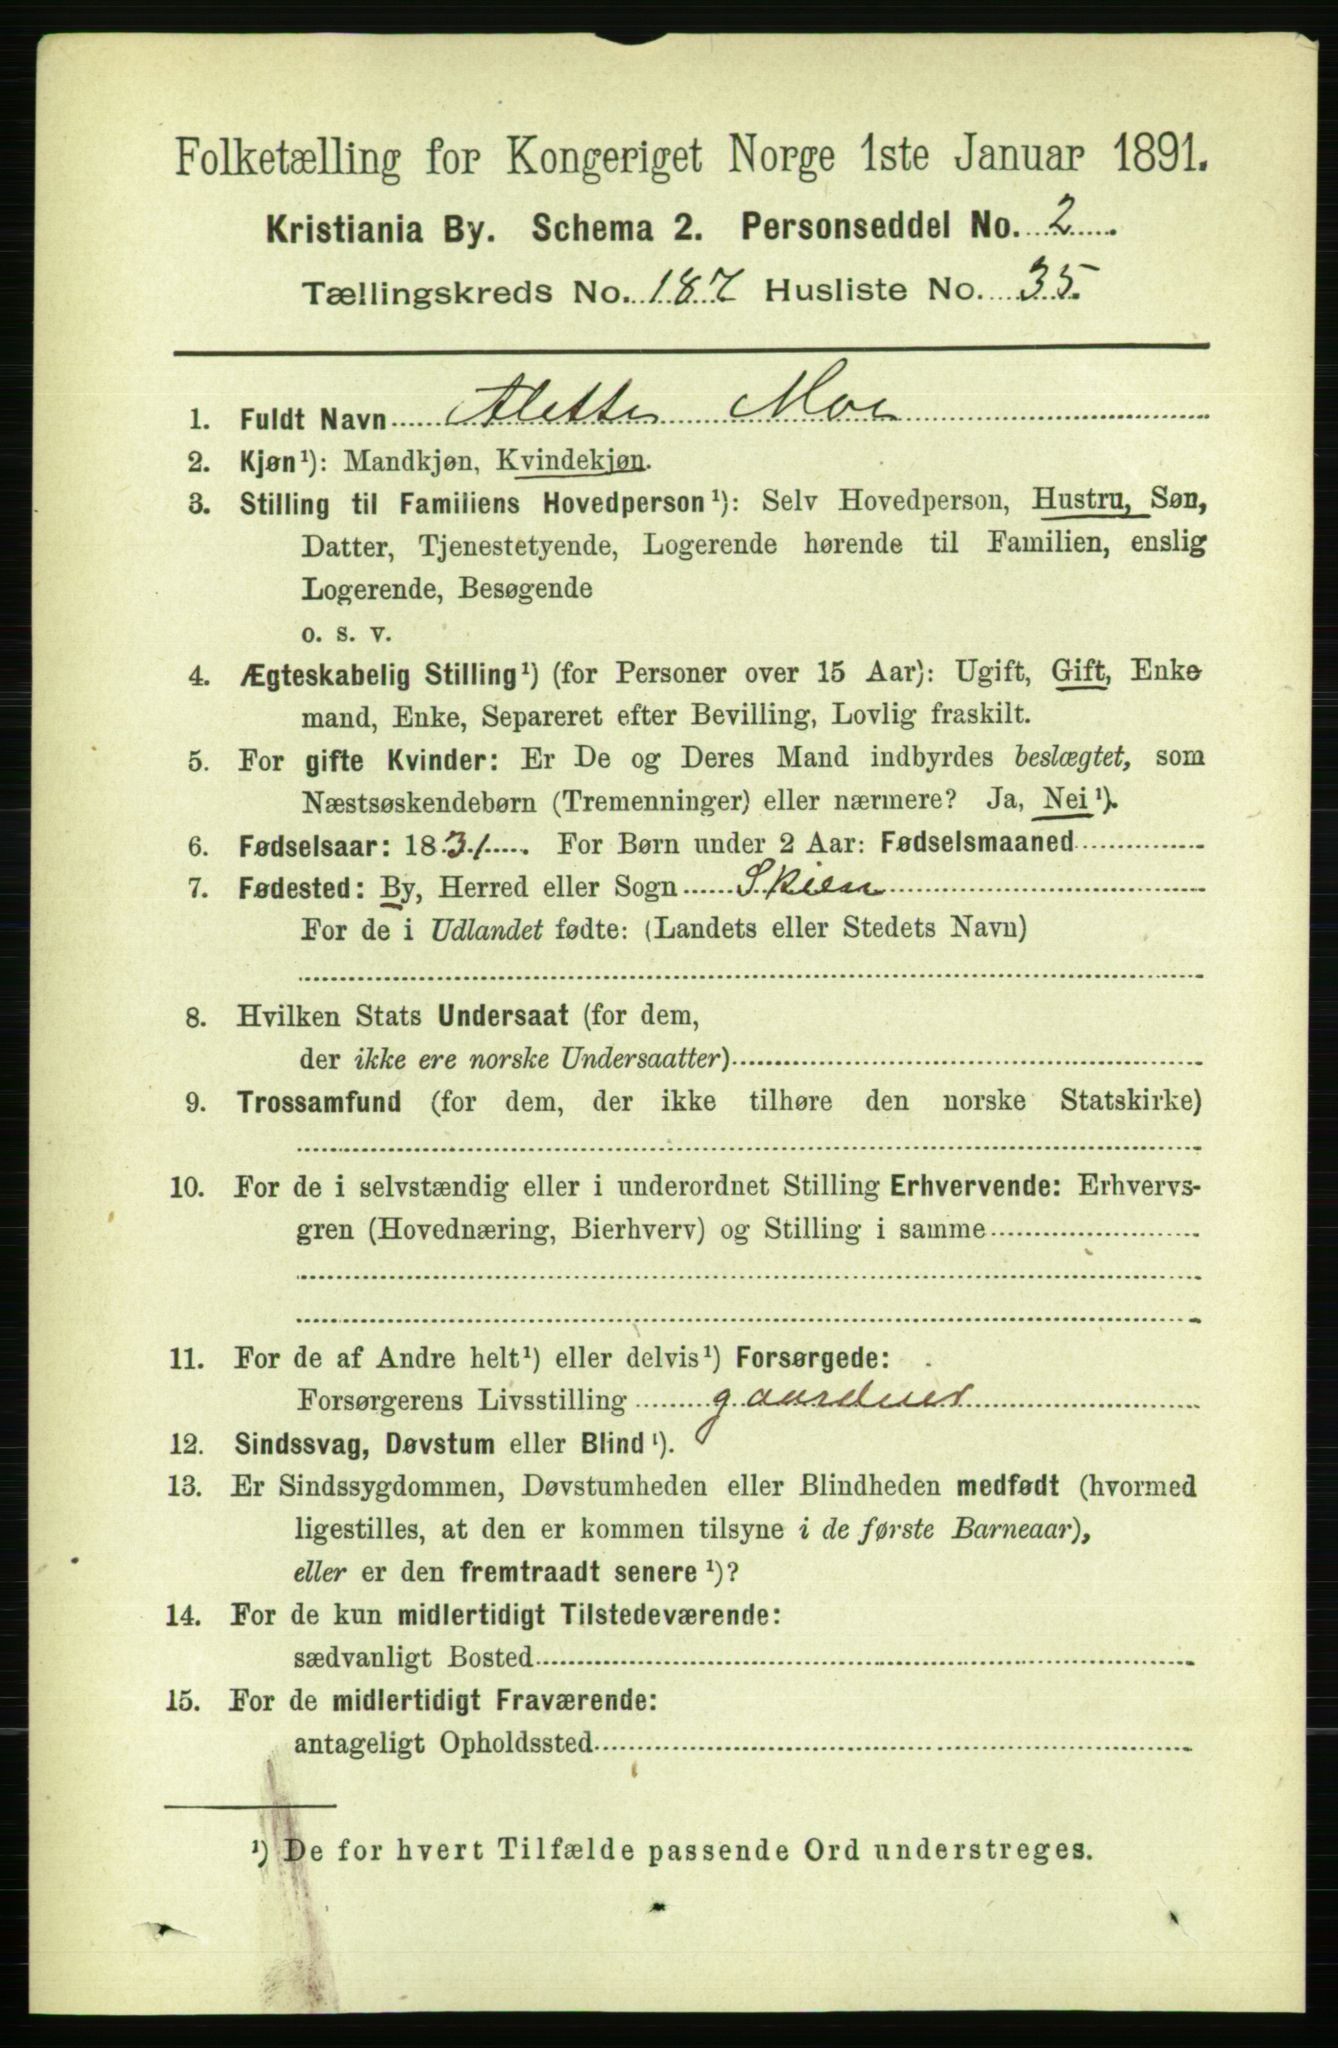 Folketælling for Kongeriget Norge 1ste Januar 1891.
Kristiania By. Schema 2. Personseddel No. 2
Tællingskreds No. 187 Husliste No. 35.
1. Fuldt Navn Alette Moe
2. Kjøn¹): Mandkjøn, Kvindekjøn.
3. Stilling til Familiens Hovedperson¹): Selv Hovedperson, Hustru, Søn,
Datter, Tjenestetyende, Logerende hørende til Familien, enslig
Logerende, Besøgende
o. s. v.
4. Ægteskabelig Stilling¹) (for Personer over 15 Aar): Ugift, Gift, Enke
mand, Enke, Separeret efter Bevilling, Lovlig fraskilt.
5. For gifte Kvinder: Er De og Deres Mand indbyrdes beslægtet, som
Næstsøskendebørn (Tremenninger) eller nærmere? Ja, Nei¹).
6. Fødselsaar: 1831 . For Børn under 2 Aar: Fødselsmaaned
7. Fødested: By, Herred eller Sogn Skien
For de i Udlandet fødte: (Landets eller Stedets Navn)
8. Hvilken Stats Undersaat (for dem,
der ikke ere norske Undersaatter)
9. Trossamfund (for dem, der ikke tilhøre den norske Statskirke)
10. For de i selvstændig eller i underordnet Stilling Erhvervende: Erhvervs-
gren (Hovednæring, Bierhverv) og Stilling i samme
11. For de af Andre helt¹) eller delvis¹) Forsørgede:
Forsørgerens Livsstilling
12. Sindssvag, Døvstum eller Blind¹).
13. Er Sindssygdommen, Døvstumheden eller Blindheden medfødt (hvormed
ligestilles, at den er kommen tilsyne i de første Barneaar),
eller er den fremtraadt senere¹)?
14. For de kun midlertidigt Tilstedeværende:
sædvanligt Bosted
15. For de midlertidigt Fraværende:
antageligt Opholdssted
¹) De for hvert Tilfælde passende Ord understreges.